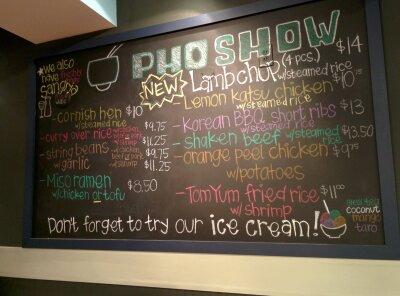 PHO SHOW
* We also
have freshly made
sangria
NEW
Lamb chop (4 pcs.) $14
w/ steamed rice
Lemon katsu chicken $10.75
w/ steamed rice
- cornish hen $10
w/ steamed rice
- curry over rice w/ chicken, $9.75
w/ shrimp $11.25
- string beans w/ chicken, $9.75
w/ garlic w/ shrimp $11.25
- Miso ramen $8.50
w/ chicken or tofu
- Korean BBQ short ribs $13
w/ steamed rice
- shaken beef w/ steamed rice $13.50
- orange peel chicken $9.75
w/ potatoes
- Tom Yum fried rice $11.00
w/ shrimp
Don't forget to try our ice cream!
green tea
coconut
mango
taro